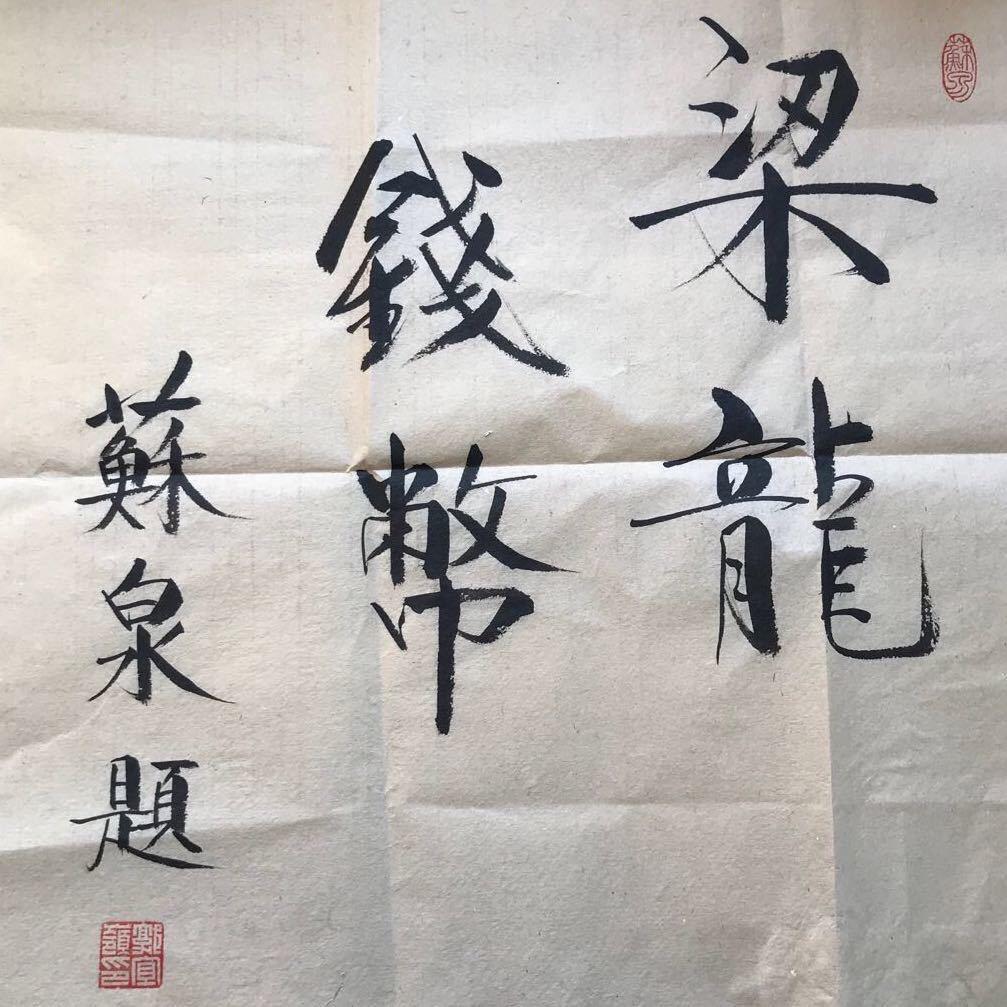 梁龍
錢幣
蘇泉題